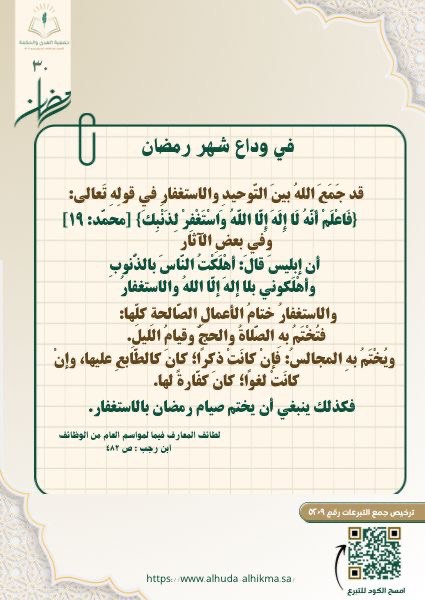 جمعية الهدى والحكمة
٣٠
رمضان
في وداع شهر رمضان
قد جَمَعَ اللهُ بينَ التّوحيدِ والاستغفارِ في قولِهِ تَعالى:
{فَاعْلَمْ أَنَّهُ لَا إِلَهَ إِلَّا اللَّهُ وَاسْتَغْفِرْ لِذَنْبِكَ} [محمّد: ١٩]
وفي بعضِ الآثارِ
أن إبليسَ قالَ: أهْلَكْتُ النّاسَ بالذّنوبِ
وأهْلَكوني بلا إلهَ إلّا اللهُ والاستغفارُ
والاستغفارُ ختامُ الأعمالِ الصّالحةِ كلِّها:
فتُخْتَمُ به الصّلاةُ والحجّ وقيامُ اللّيلِ.
ويُخْتَمُ بهِ المجالسُ: فإنْ كانَتْ ذكْرًا؛ كانَ كالطّابعِ عليها، وإنْ
كانَتْ لغوًا؛ كانَ كفّارةً لها.
فكذلك ينبغي أن يختم صيام رمضان بالاستغفار.
لطائف المعارف فيما لمواسم العام من الوظائف
ابن رجب : ص ٤٨٢
ترخيص جمع التبرعات رقم ٥٢٠٩
امسح الكود للتبرع
https://www.alhuda-alhikma.sa/